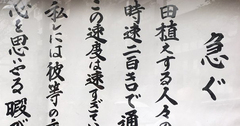 急ぐ
田植えする人々の
時速二百キロで通
この速度は速すぎてい
私には彼等の
心を思いやる暇が